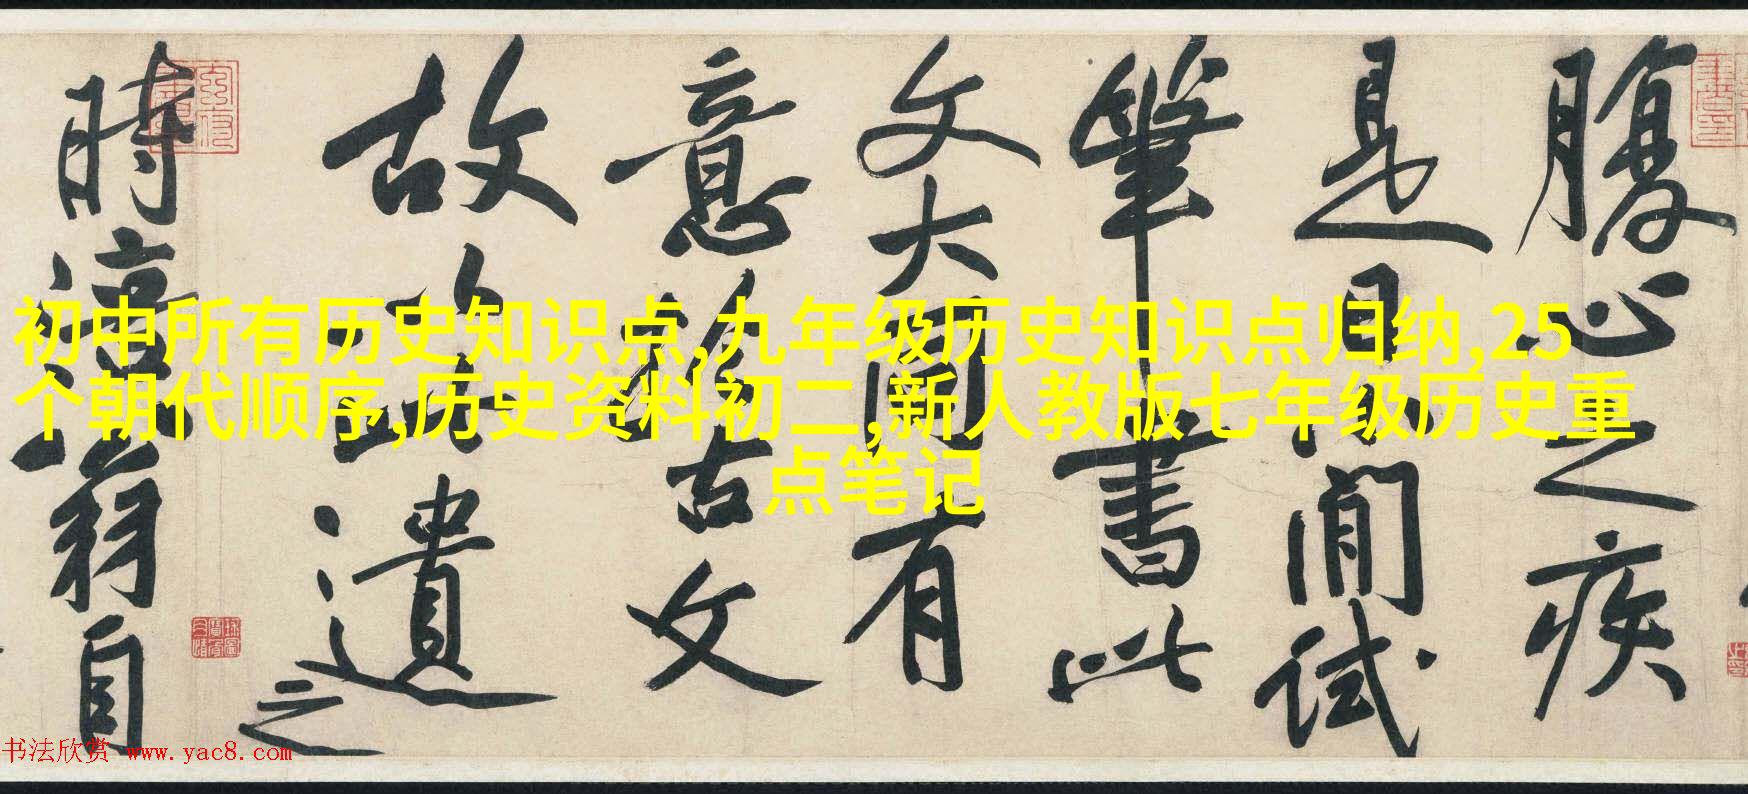 腹心之疾
是日小閒試
筆書此
文大同有
意於古文
故以此遺之
時涪翁自
初中所有历史知识点,九年级历史知识点归纳,25
个朝代顺序,历史资料初二,新人教版七年级历史重
点笔记
书法欣赏 www.yac8.com